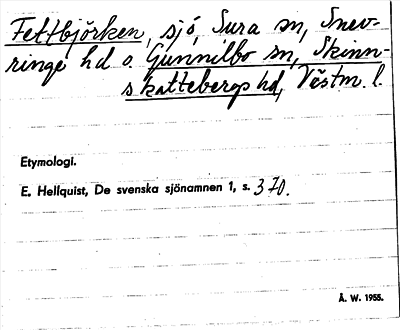 Fettbjörken, sjö, Sura sn, Snev-
ringe hd o. Gunnilbo sn, Skinn-
skattebergs hd, Västm. l.
Etymologi.
E. Hellquist, De svenska sjönamnen 1, s. 370.
Å. W. 1955.